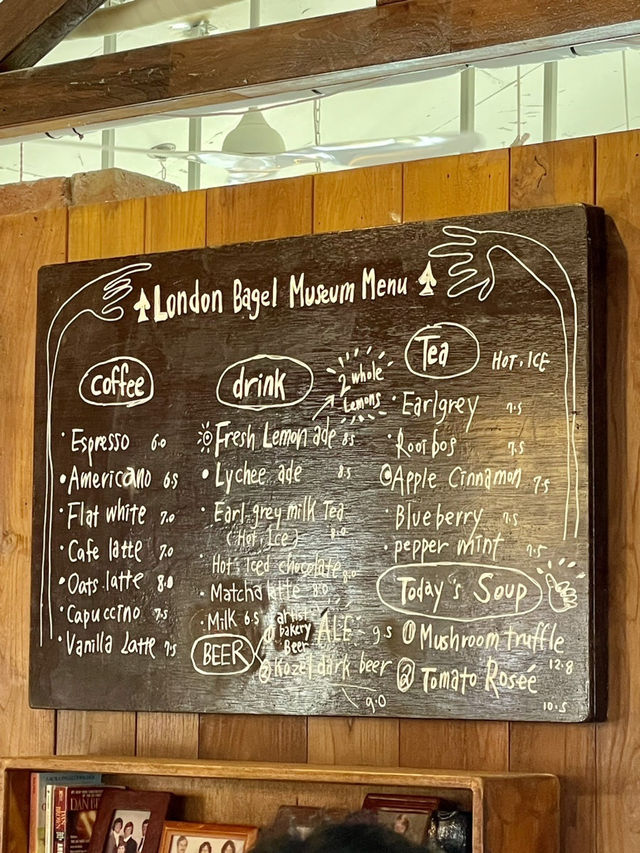 London Bagel Museum Menu
coffee
Espresso 6.0
Americano 6.5
Flat white 7.0
Cafe latte 7.0
Oats latte 8.0
Capuccino 7.5
Vanilla Latte 7.5
drink
2 whole
Lemons
Fresh Lemon ade 8.5
Lychee ade 8.5
Earl grey milk Tea
(Hot, Ice) 8.0
Hot, iced chocolate 8.0
Matcha latte 8.0
Milk 6.5
BEER
① artist bakery Beer ALE 9.5
② Kozel dark beer
9.0
Tea HOT, ICE
Earlgrey 7.5
Rooibos 7.5
Apple Cinnamon 7.5
Blueberry 7.5
pepper mint 7.5
Today's Soup
① Mushroom truffle
12.8
② Tomato Roseé
10.5
DAN BROWN